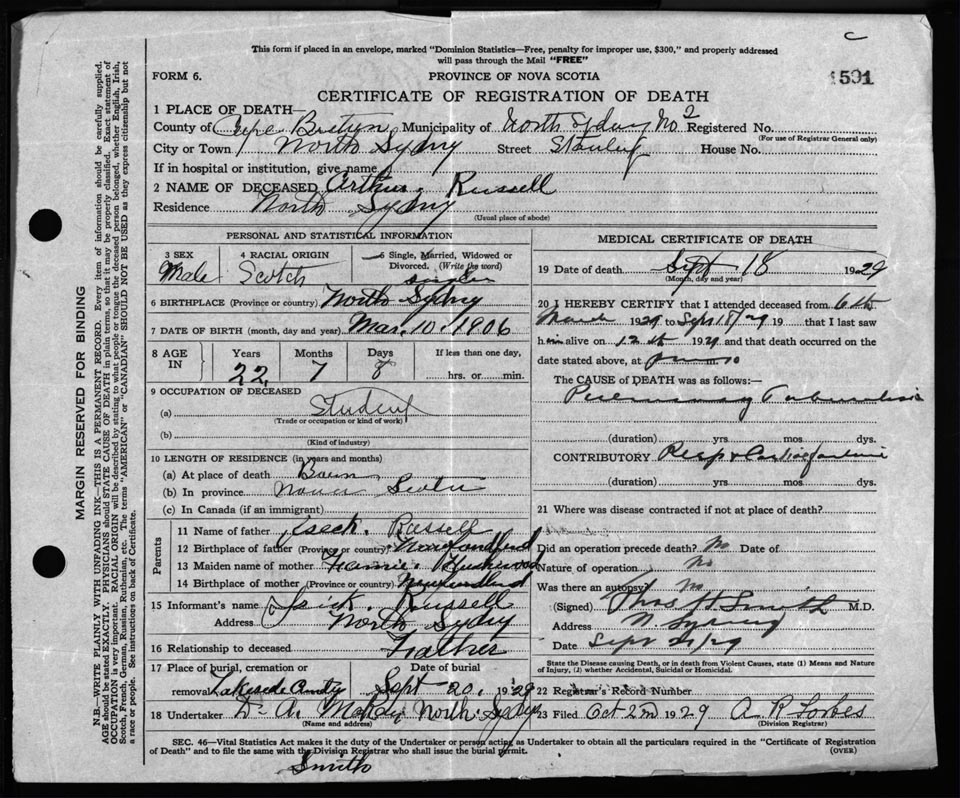 C
This form if placed in an envelope, marked "Dominion Statistics—Free, penalty for improper use, $300," and properly addressed
will pass through the Mail "FREE"
FORM 6. PROVINCE OF NOVA SCOTIA 1591
CERTIFICATE OF REGISTRATION OF DEATH
1 PLACE OF DEATH—
County of Cape Breton Municipality of North Sydney No 2 Registered No.
(For use of Registrar General only)
City or Town North Sydny Street Stanley House No.
If in hospital or institution, give name
2 NAME OF DECEASED Arthur. Russell
Residence North Sydny
(Usual place of abode)
PERSONAL AND STATISTICAL INFORMATION
3 SEX 4 RACIAL ORIGIN 5 Single, Married, Widowed or
Divorced. (Write the word)
Male Scotch single
6 BIRTHPLACE (Province or country) North Sydny
7 DATE OF BIRTH (month, day and year) Mar. 10. 1906
8 AGE IN Years Months Days If less than one day,
22 7 8 hrs. or min.
9 OCCUPATION OF DECEASED
(a) Student
(Trade or occupation or kind of work)
(b)
(Kind of industry)
10 LENGTH OF RESIDENCE (in years and months)
(a) At place of death Born
(b) In province Nova Scotia
(c) In Canada (if an immigrant)
Parents
11 Name of father Russell
12 Birthplace of father (Province or country) Newfoundlnd
13 Maiden name of mother Fannie.
14 Birthplace of mother (Province or country) Newfoundlnd
15 Informant's name Russell
Address North Sydny
16 Relationship to deceased Father
17 Place of burial, cremation or Date of burial
removal Lakeside Sept 20. 1929
18 Undertaker North Sydny
(Name and address)
MEDICAL CERTIFICATE OF DEATH
19 Date of death Sept 18 1929
(Month, day and year)
20 I HEREBY CERTIFY that I attended deceased from 6th
March 1929 to Sept 18/29 19 that I last saw
him alive on 12th 1929 and that death occurred on the
date stated above, at m.
The CAUSE of DEATH was as follows:—
Pulmonary Tuberculosis
(duration) yrs mos dys.
CONTRIBUTORY Resp & Cardiac failure
(duration) yrs. mos. dys.
21 Where was disease contracted if not at place of death?
Did an operation precede death? No Date of
Nature of operation No
Was there an autopsy? No
(Signed) Thos H. Smith M.D.
Address N Sydney
Date Sept /29
State the Disease causing Death, or in death from Violent Causes, state (1) Means and Nature
of Injury, (2) whether Accidental, Suicidal or Homicidal.
22 Registrar's Record Number
23 Filed Oct 2nd 1929 A R Forbes
(Division Registrar)
SEC. 46—Vital Statistics Act makes it the duty of the Undertaker or person acting as Undertaker to obtain all the particulars required in the "Certificate of Registration
of Death" and to file the same with the Division Registrar who shall issue the burial permit. (OVER)
Smith
MARGIN RESERVED FOR BINDING
N.B.—WRITE PLAINLY WITH UNFADING INK—THIS IS A PERMANENT RECORD. Every item of information should be carefully supplied.
AGE should be stated EXACTLY. PHYSICIANS should STATE CAUSE OF DEATH in plain terms, so that it may be properly classified. Exact statement of
OCCUPATION is very important. RACIAL ORIGIN will be described by stating to what people or tongue the deceased person belonged, whether English, Irish,
Scotch, French, German, Russian, Ruthenian, etc. The terms "AMERICAN" or "CANADIAN" SHOULD NOT BE USED as they express citizenship but not
a race or people. See instructions on back of Certificate.